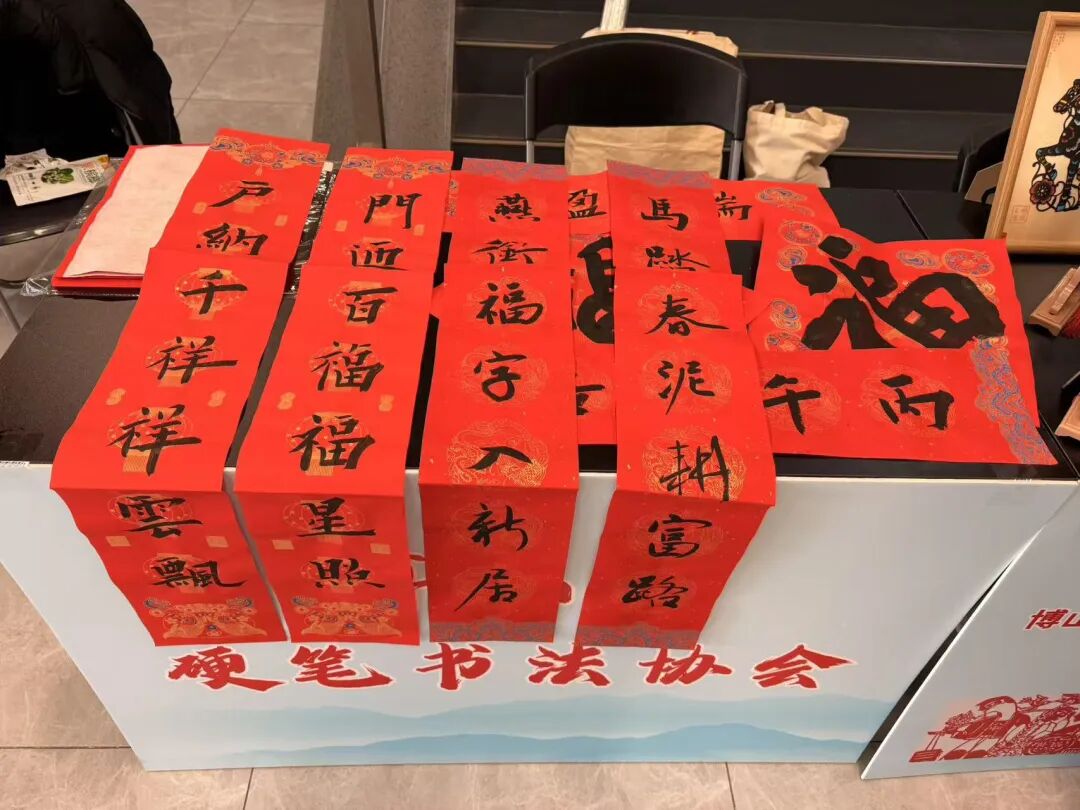 馬踏春泥耕富路
燕銜福字入新居
門迎百福福星照
户納千祥祥雲飄
福
丙午
瑞
盈
硬笔书法协会
博山